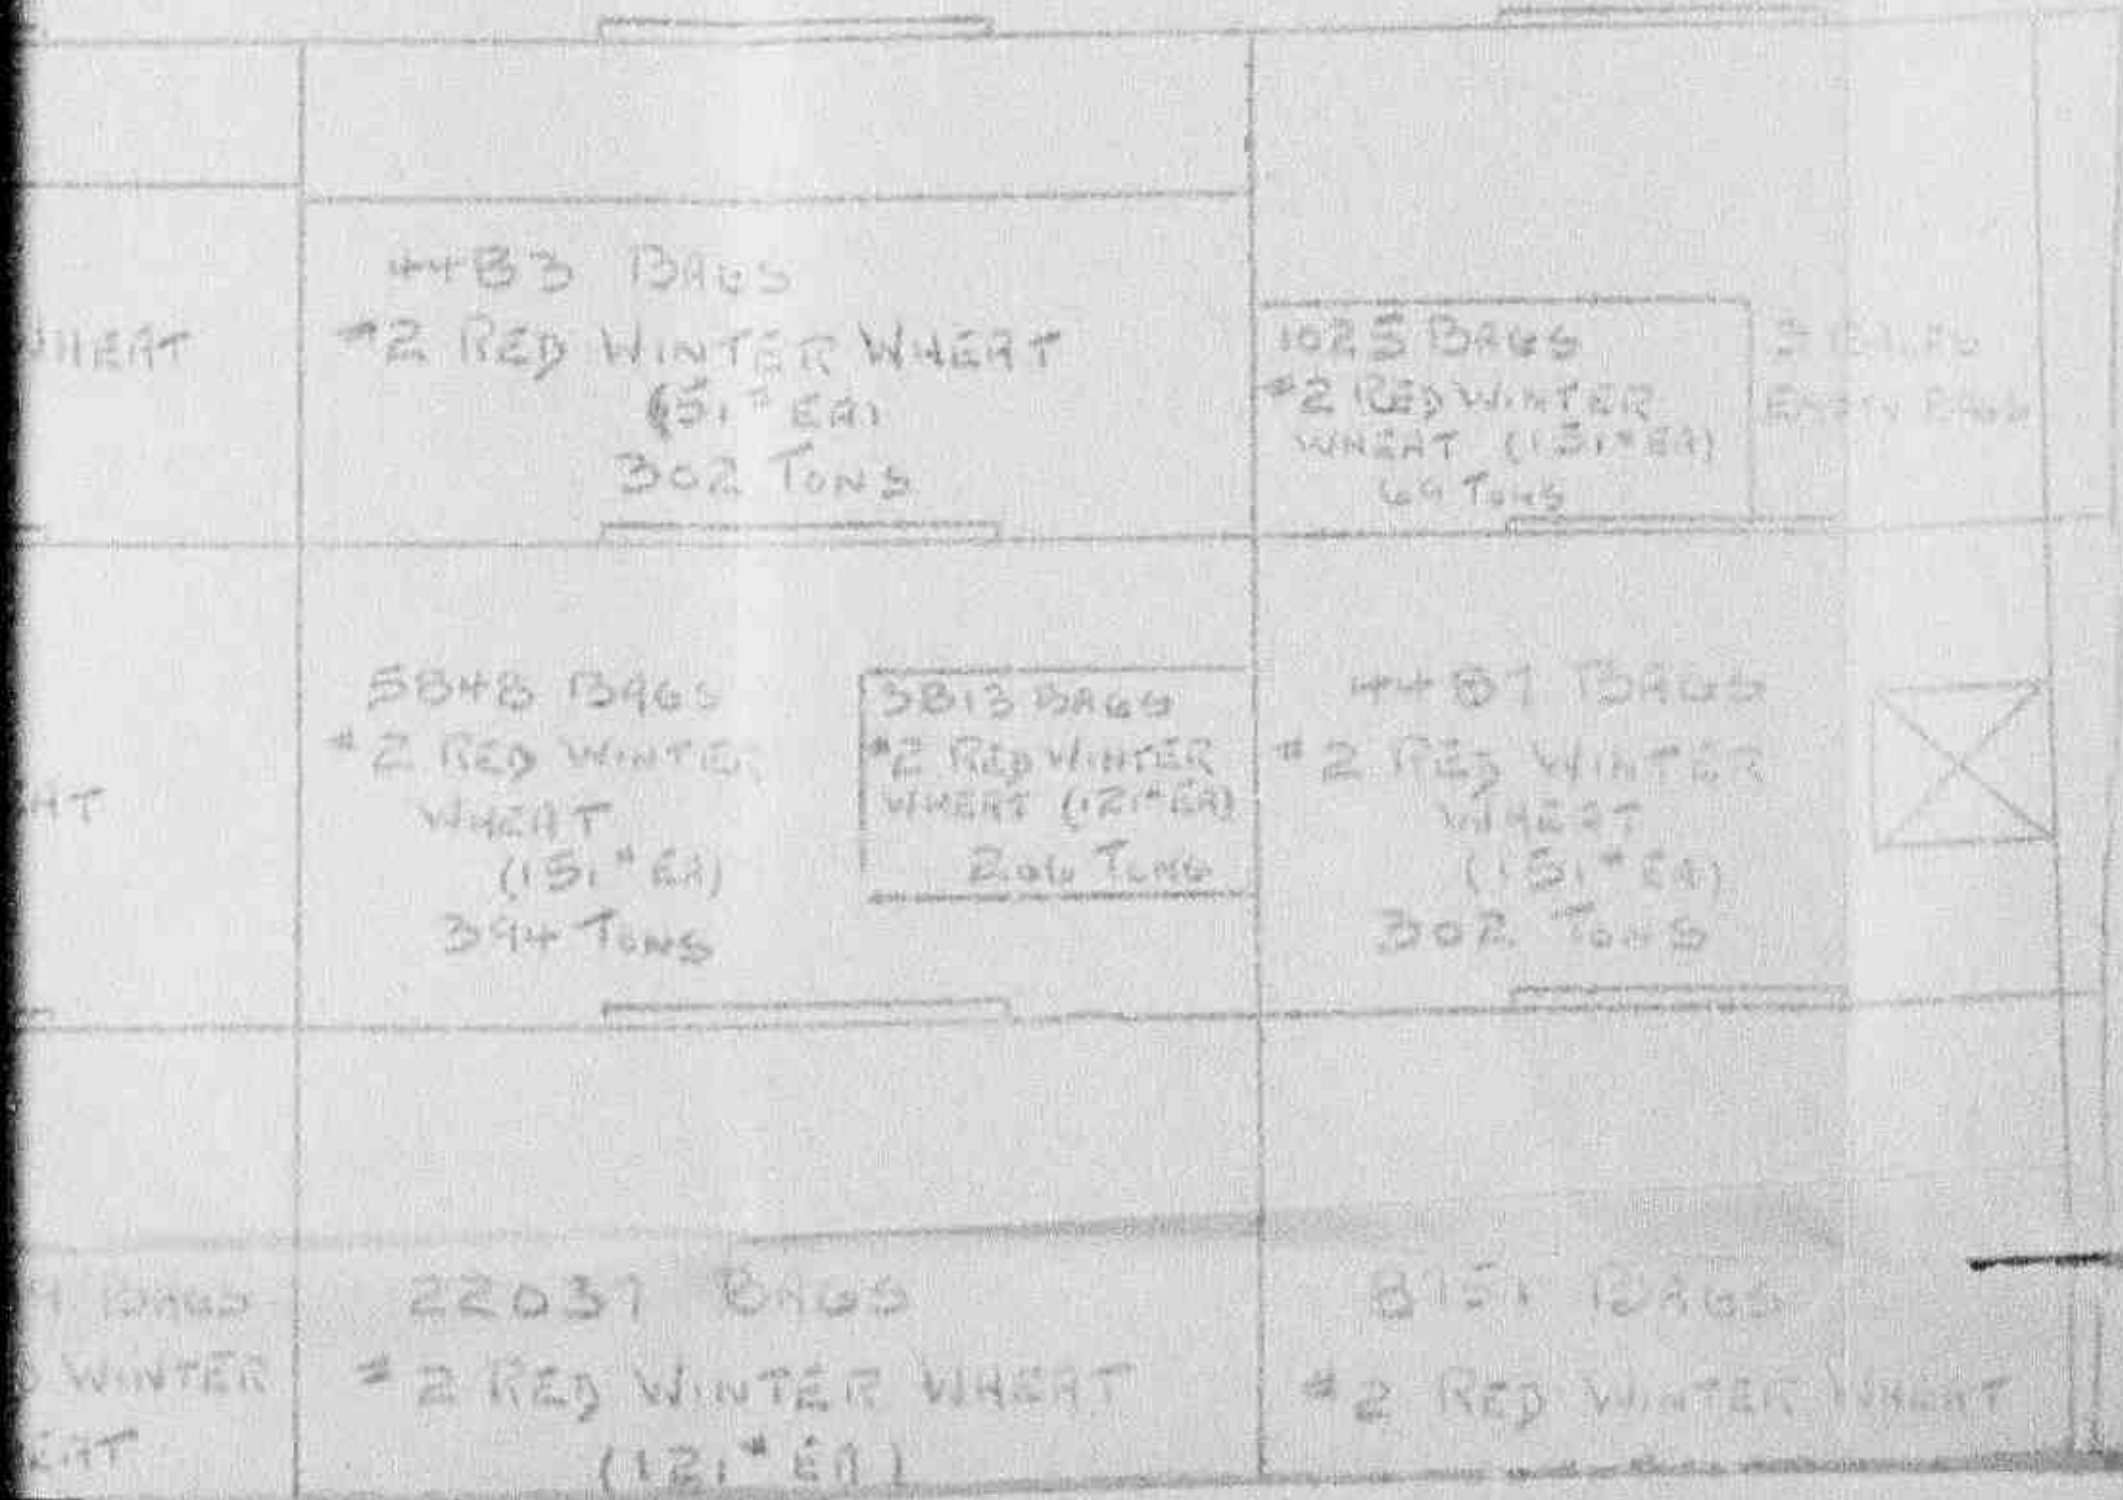 WHEAT
4483 BAGS
#2 RED WINTER WHEAT
(151# EA)
302 TONS
1025 BAGS
#2 RED WINTER
WHEAT (151# EA)
69 TONS
3 BALES
EMPTY BAGS
5848 BAGS
#2 RED WINTER
WHEAT
(151# EA)
394 TONS
3813 BAGS
#2 RED WINTER
WHEAT (121# EA)
206 TONS
4487 BAGS
#2 RED WINTER
WHEAT
(151# EA)
302 TONS
BAGS
WINTER
22037 BAGS
#2 RED WINTER WHEAT
(121# EA)
BAGS
#2 RED WINTER WHEAT